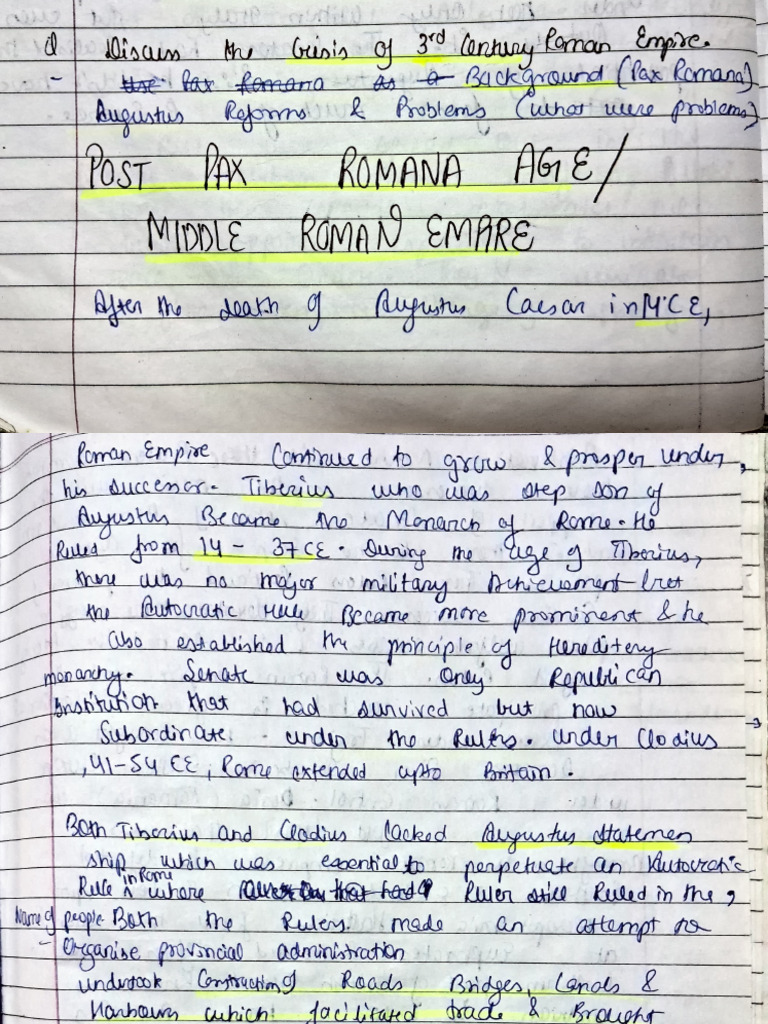 Q Discuss the Crisis of 3rd Century Roman Empire.
- Use Pax Romana as a Background (Pax Romana)
Augustus Reforms & Problems (what were problems)
POST PAX ROMANA AGE/
MIDDLE ROMAN EMPIRE
After the death of Augustus Caesar in 14 CE,
Roman Empire Continued to grow & prosper under,
his successor. Tiberius who was step son of
Augustus Became the Monarch of Rome. He
Ruled from 14 - 37 CE. During the age of Tiberius,
there was no major military Achievement but
the Autocratic Rule Became more prominent & he
also established the principle of Hereditery
monarchy. Senate was only Republican
institution that had survived but now
Subordinate under the Rulers. Under Clodius
, 41-54 CE, Rome extended upto Britain.
Both Tiberius and Clodius lacked Augustus statemen
ship which was essential to perpetuate an Autocratic
Rule in Rome where Ruler still Ruled in the,
Name of people Both the Rulers made an attempt to
- Organise provincial administration
undertook Construction of Roads Bridges, Canals &
Harbours which facilitated trade & Brought